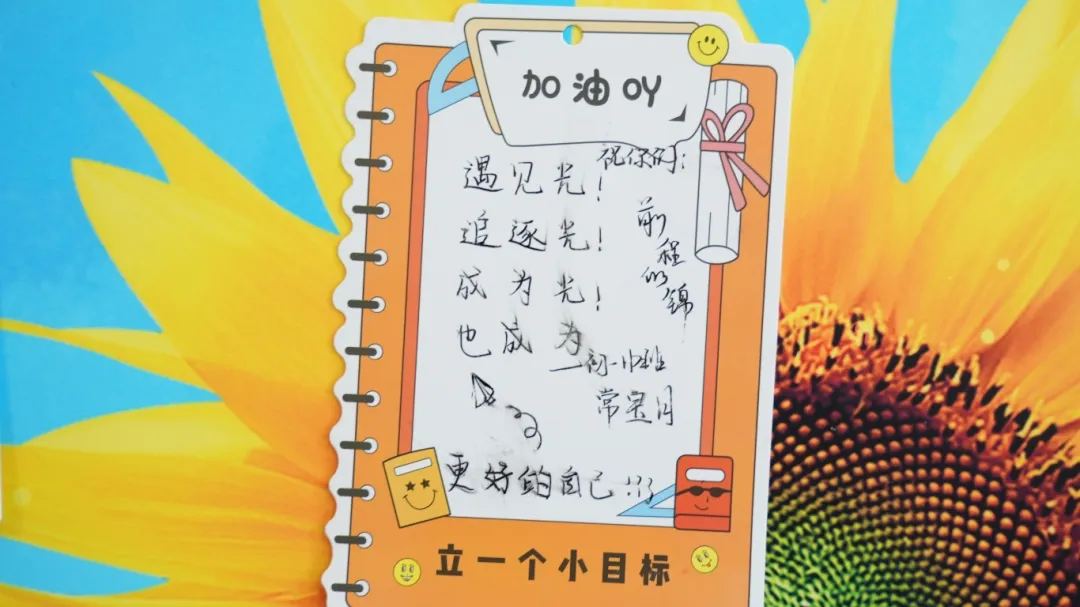 加油OY
祝你的:
遇见光!
追逐光!
前程似锦
成为光!
也成为
常宝月
更好的自己!!!
立一个小目标